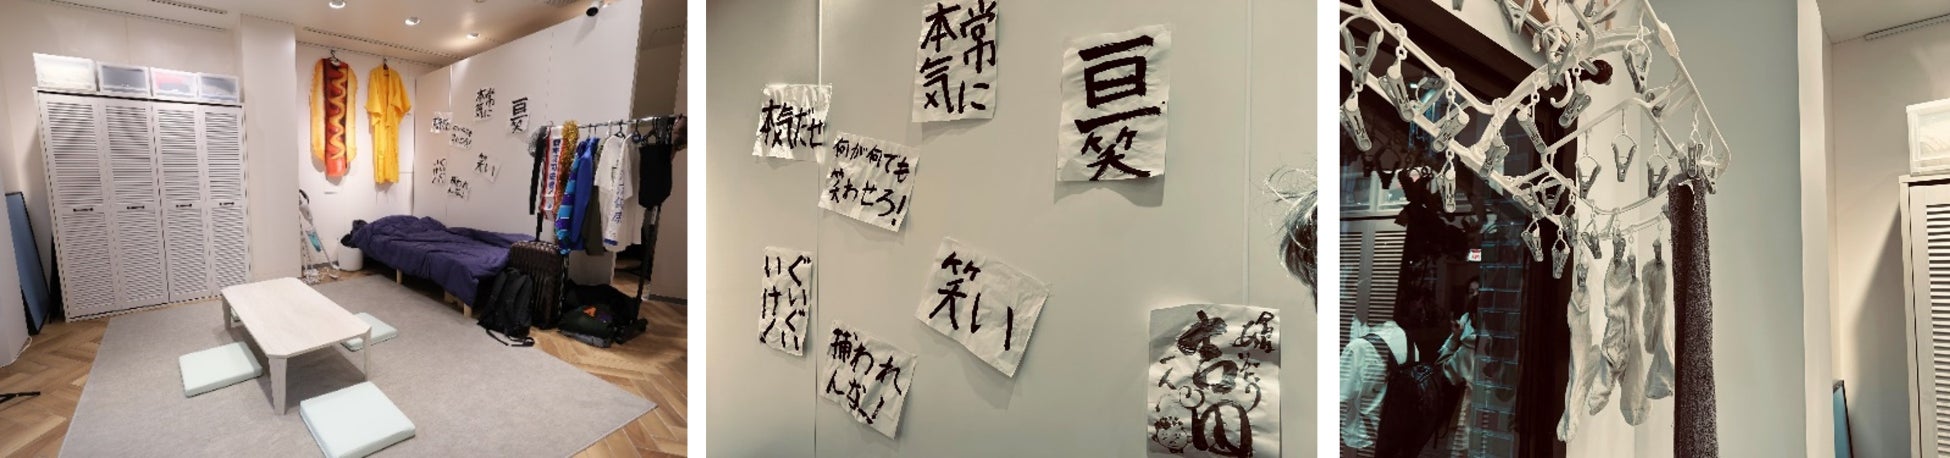 常に
本気
亘
笑
本気だせ
何が何でも
笑わせろ！
笑い
ぐいぐい
いけ！
捕われ
んな！